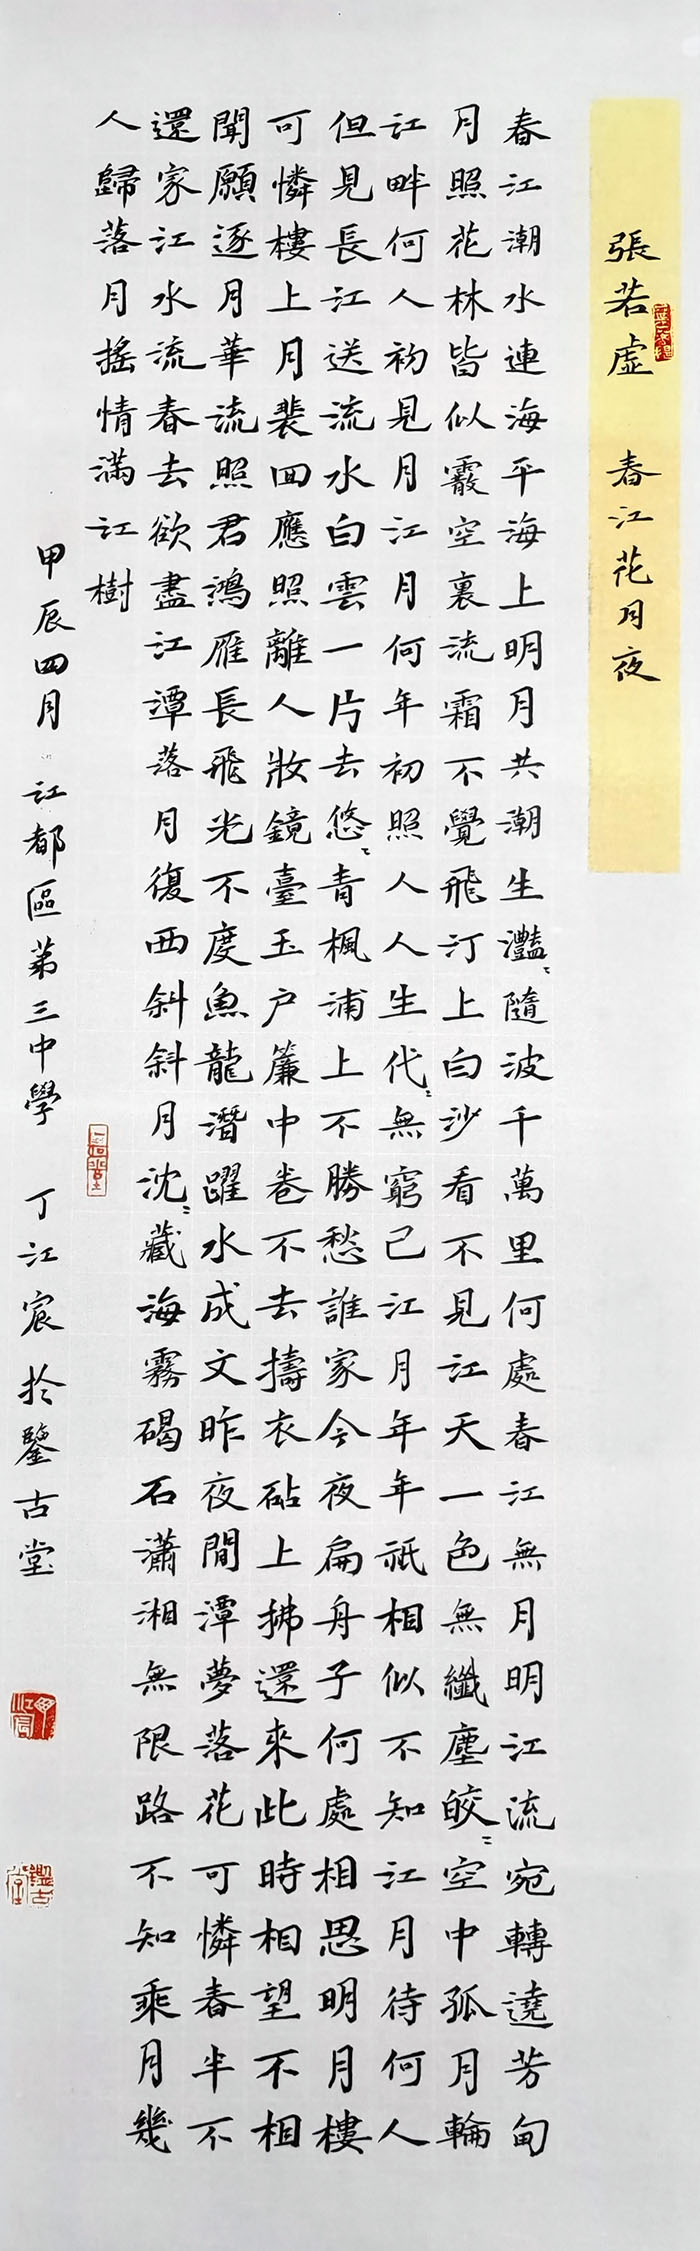 張若虛 春江花月夜
春江潮水連海平海上明月共潮生灩〻隨波千萬里何處春江無月明江流宛轉遶芳甸
月照花林皆似霰空裏流霜不覺飛汀上白沙看不見江天一色無纖塵皎〻空中孤月輪
江畔何人初見月江月何年初照人人生代〻無窮已江月年年祇相似不知江月待何人
但見長江送流水白雲一片去悠〻青楓浦上不勝愁誰家今夜扁舟子何處相思明月樓
可憐樓上月裴回應照離人妝鏡臺玉户簾中卷不去擣衣砧上拂還來此時相望不相
聞願逐月華流照君鴻雁長飛光不度魚龍潛躍水成文昨夜閒潭夢落花可憐春半不
還家江水流春去欲盡江潭落月復西斜斜月沈〻藏海霧碣石瀟湘無限路不知乘月幾
人歸落月搖情滿江樹
甲辰四月江都區第三中學 丁江宸於鑒古堂